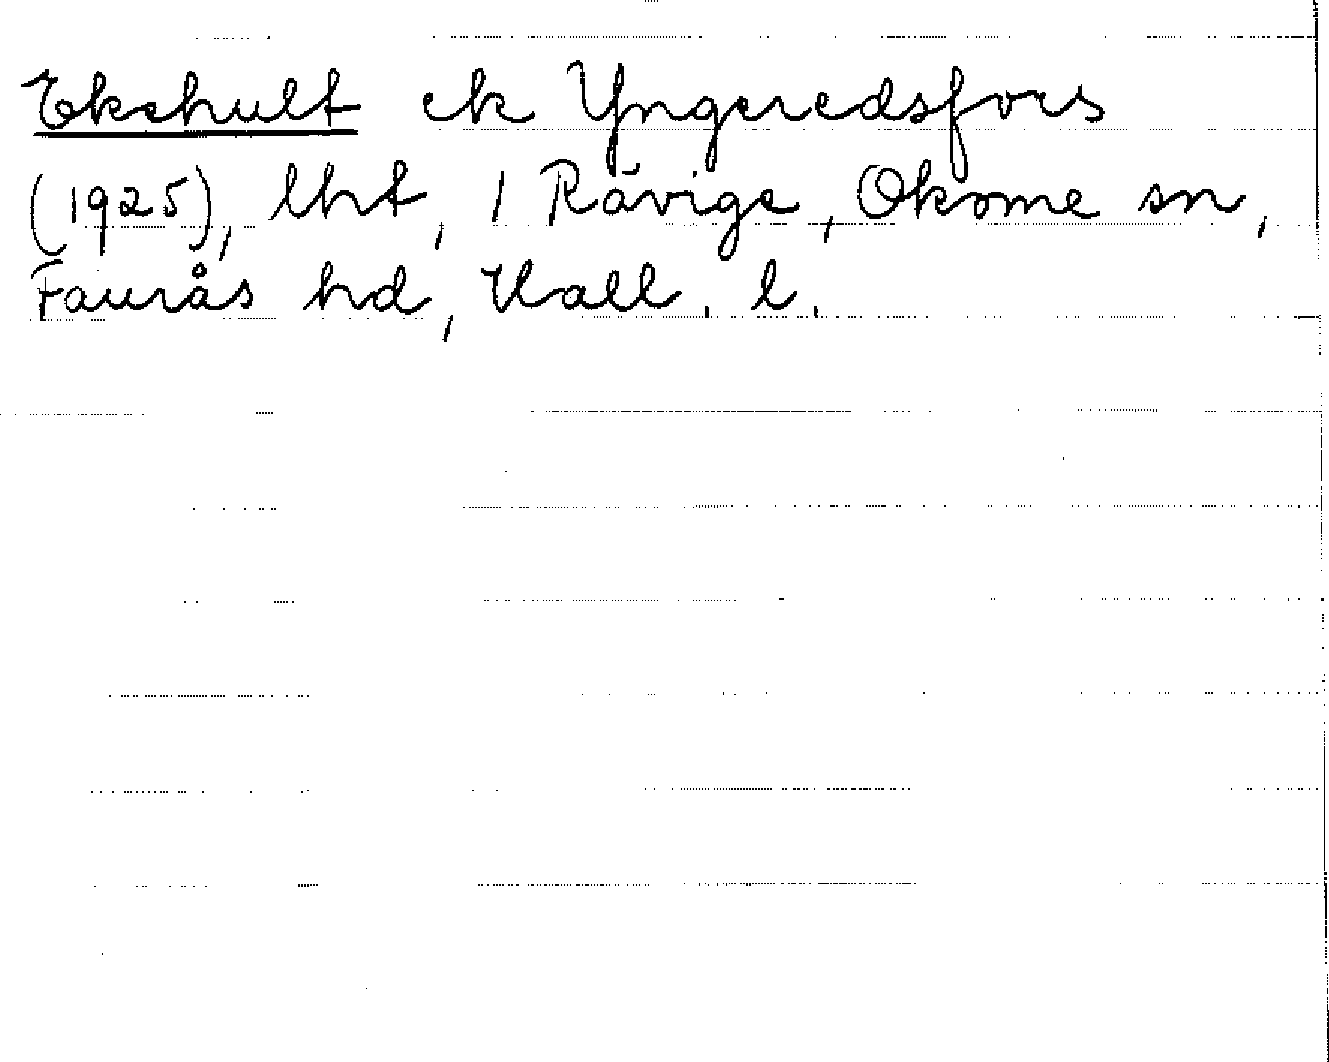 Ekehult ek Yngeredsfors
(1925), lht, 1 Rävige, Okome sn,
Faurås hd, Hall. l.